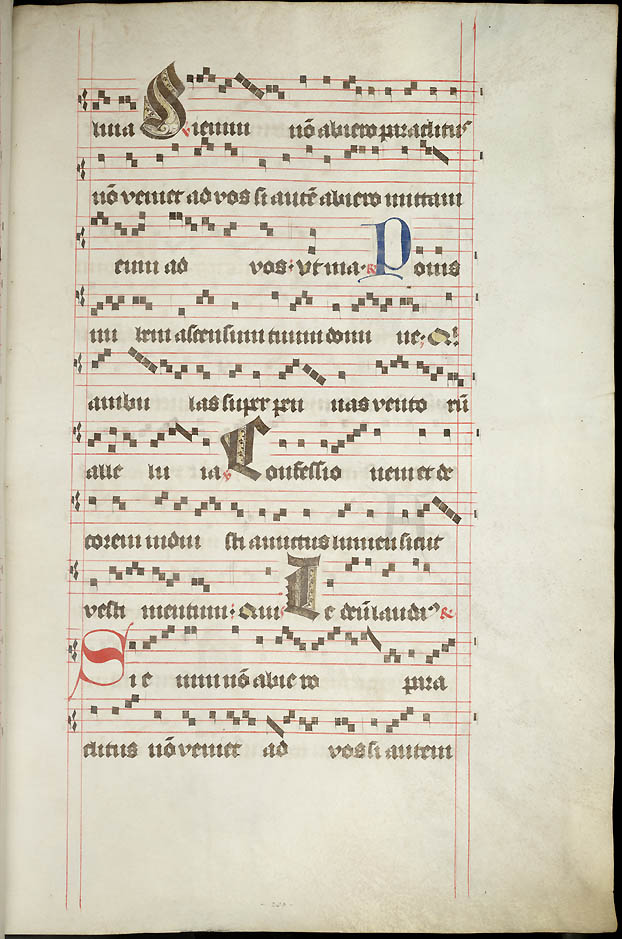 luia Si enim nō abiero paraclitus
nō veniet ad vos si autē abiero mittam
eum ad vos. Vt ma. R Ponis
nu bem ascensum tuum domi ne. Q
ambu las super pen nas vento rū
alle lu ia V Confessio nem et de
corem indui sti amictus lumen sicut
vesti mentum. Qui Te deū laudaꝰ R
Si e nim nō abie ro para
clitus nō veniet ad vos si autem